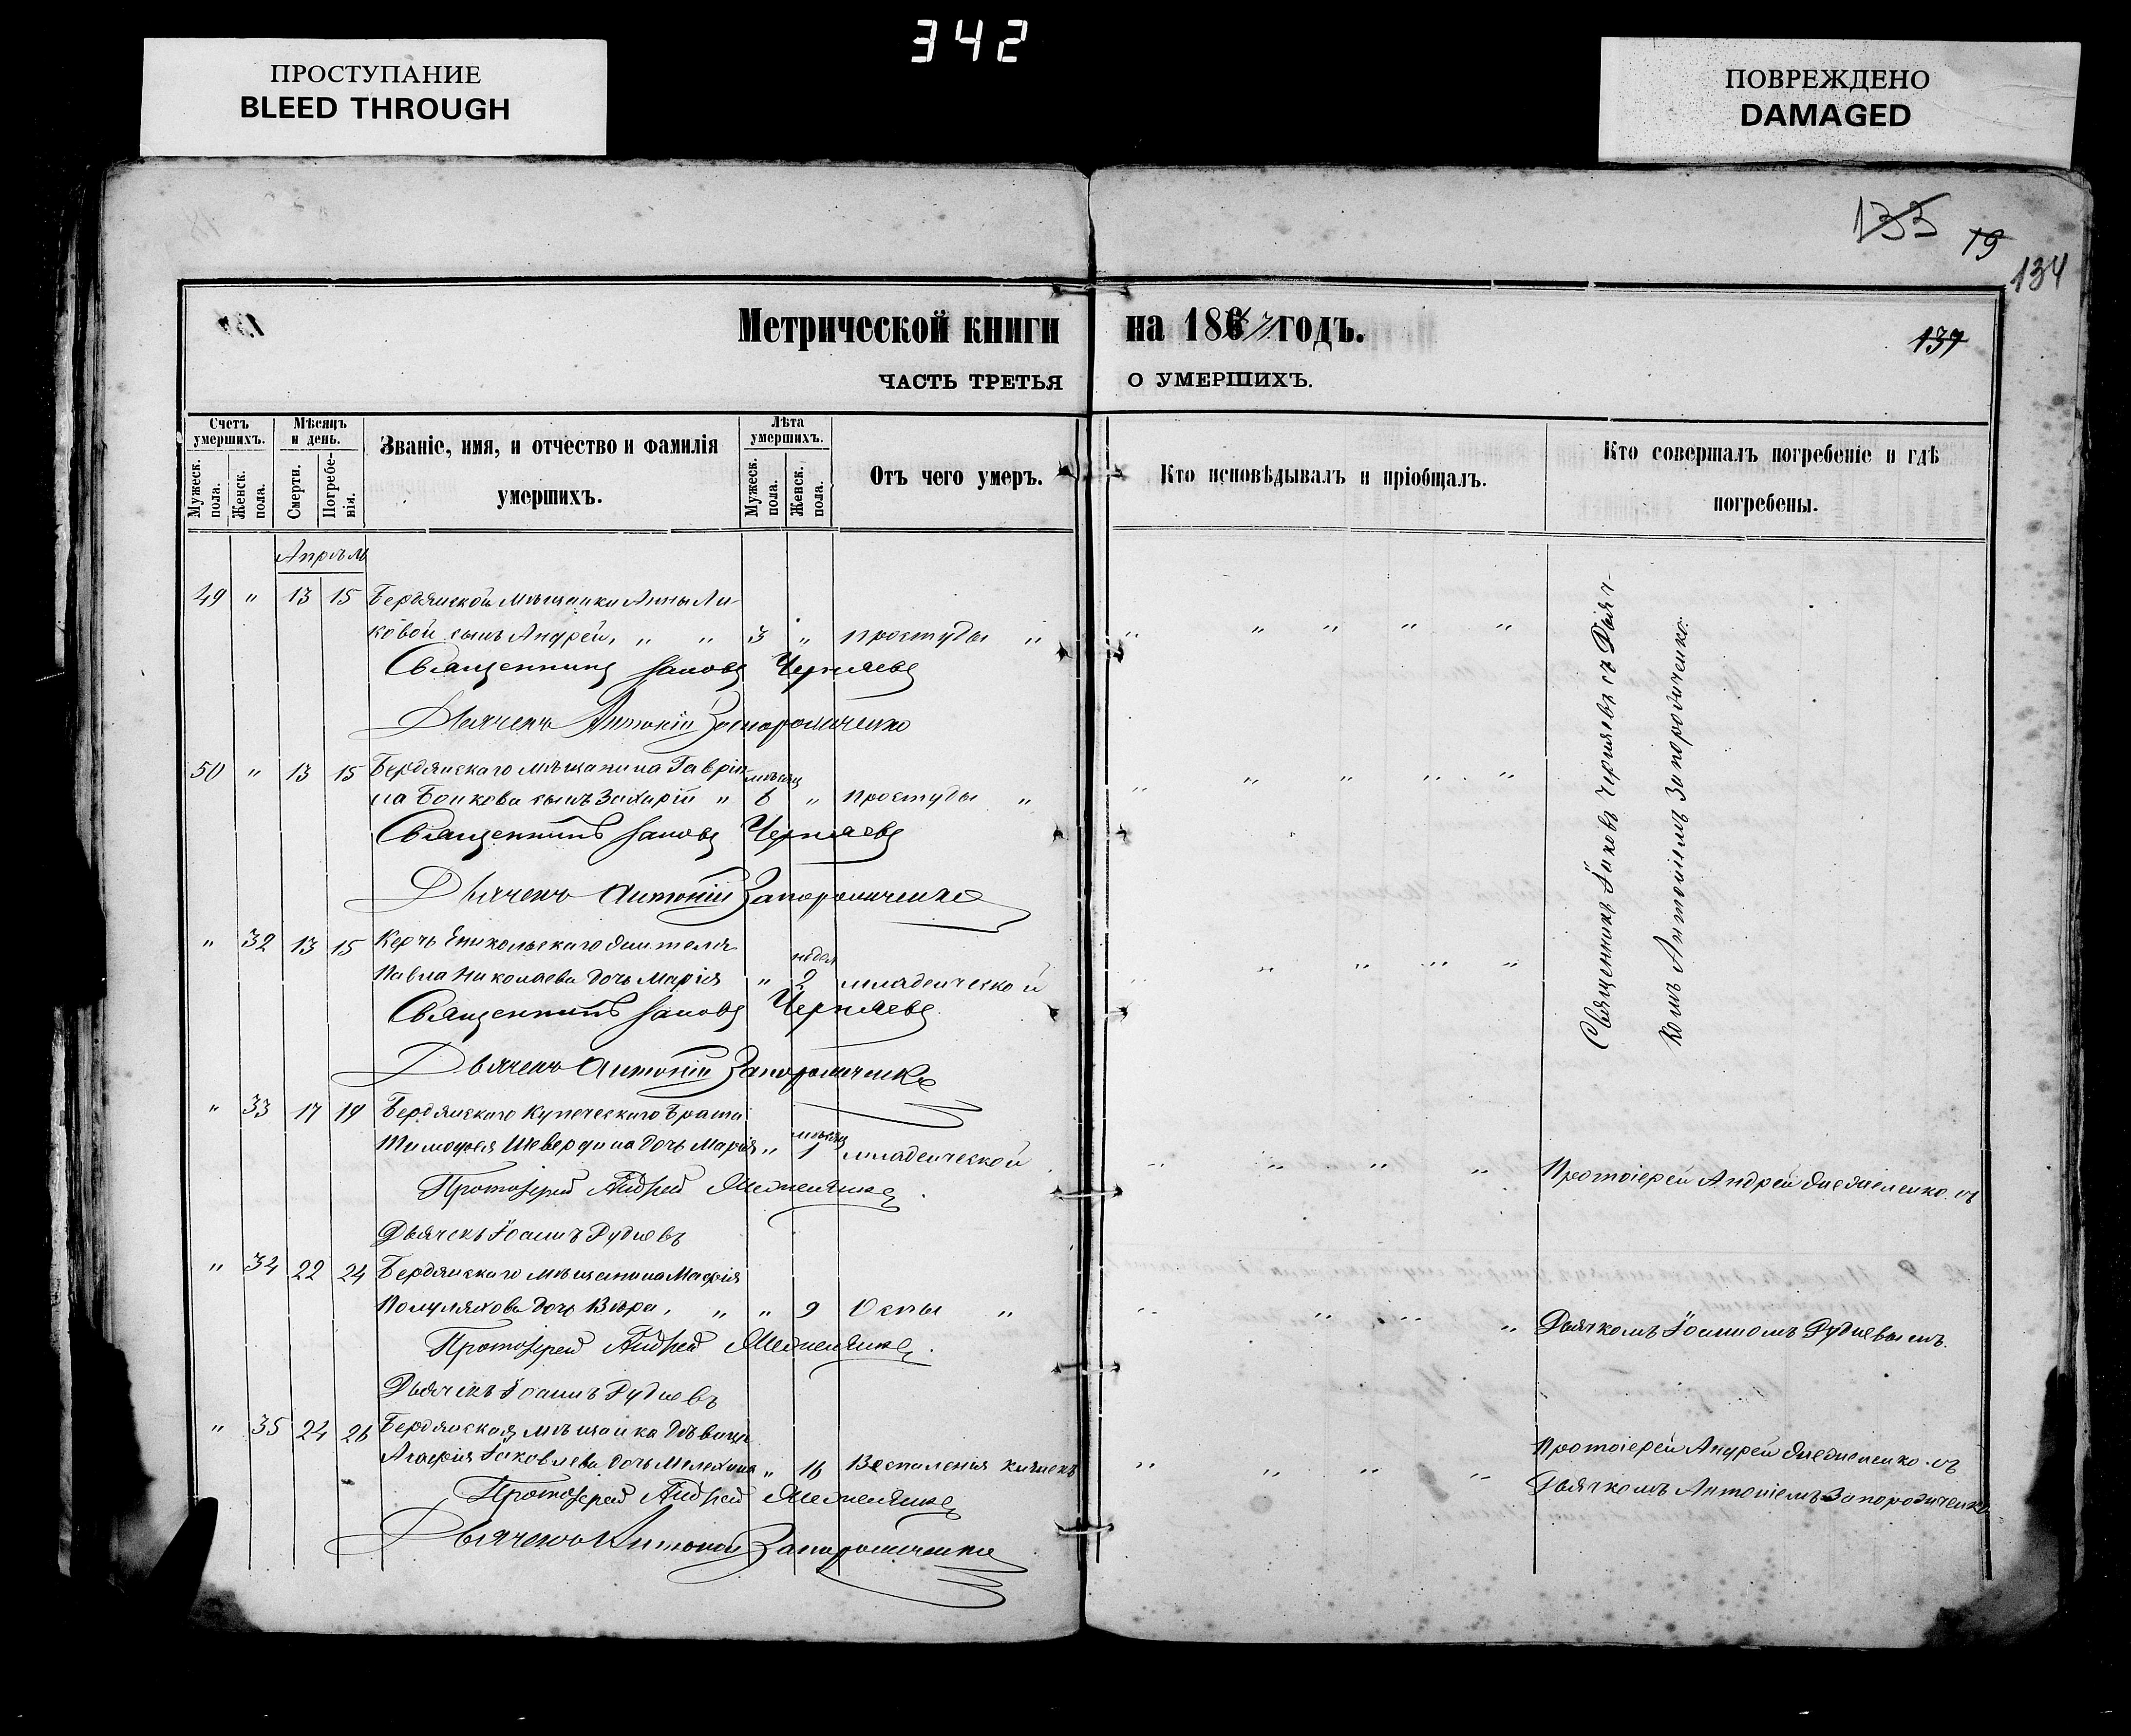 342
ПРОСТУПАНИЕ
BLEED THROUGH
ПОВРЕЖДЕНО
DAMAGED
133
19
134
137
Метрической книги на 1867 годъ.
ЧАСТЬ ТРЕТЬЯ О УМЕРШИХЪ.
Счетъ умершихъ.
Мужеск. пола.
Женск. пола.
Мѣсяцъ и день.
Смерти.
Погребенія.
Званіе, имя, и отчество и фамилія
умершихъ.
Лѣта умершихъ.
Мужеск. пола.
Женск. пола.
Отъ чего умеръ.
Кто исповѣдывалъ и пріобщалъ.
Кто совершалъ погребеніе и гдѣ
погребены.
Апрѣль
49 " 13 15 Бердянской мѣщанки Анны Ли-
ковой сынъ Андрей, " " 3 " простуды " " " " " "
Священникъ Іаковъ Черняевъ
Дьячекъ Антоній Запорожченко
50 " 13 15 Бердянскаго мѣщанина Гаврі-
ла Бойкова сынъ Захарій " мѣсяц 6 " простуды " " " " " "
Священникъ Іаковъ Черняевъ
Дьячекъ Антоній Запорожченко
" 32 13 15 Керчь Еникольскаго жителя
Павла Николаева дочь Марія " недѣл 2 младенческой " " " "
Священникъ Іаковъ Черняевъ
Дьячекъ Антоній Запорожченко
Священникъ Іаковъ Черняевъ съ Дьяч-
комъ Антоніемъ Запорожченко.
" 33 17 19 Бердянскаго Купеческаго брата
Тимофея Шевердина дочь Марія " мѣсяц 1 младенческой " " " " Протоіерей Андрей съ
Протоіерей Андрей
Дьячекъ Іоаннъ Рудневъ
" 34 22 24 Бердянскаго мѣщанина
дочь Вѣра, " " 9 Оспы " " " " " Дьячкомъ Іоанномъ Рудневымъ.
Протоіерей Андрей
Дьячекъ Іоаннъ Рудневъ
" 35 24 26 Бердянская мѣщанка дѣвица
Агафія Іаковлева дочь " 16 Воспаленія кишекъ " " " " Протоіерей Андрей съ
Протоіерей Андрей
Дьячкомъ Антоніемъ Запорожченко
Дьячекъ Антоній Запорожченко